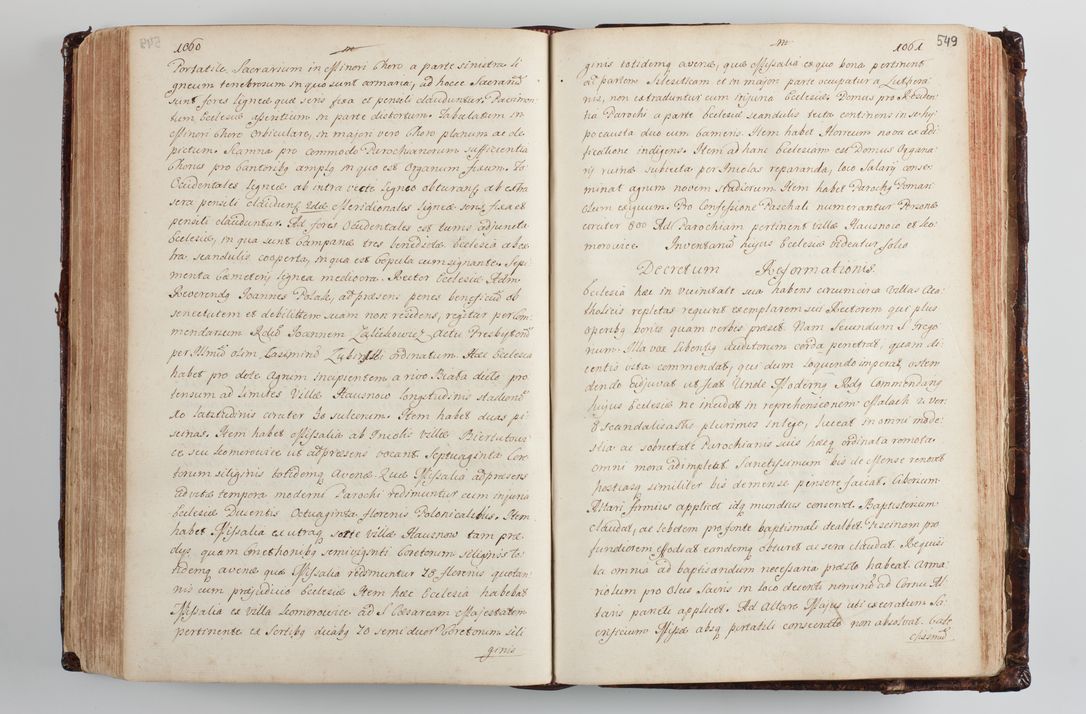 1060
m
Portatile. Sacrarium in Minori Choro a parte sinistra li
gneum tenebrosum in quo sunt armaria, ad hocce Sacrariũ
sunt fores ligneæ quæ sera fixa et pensili clauduntur. Pavimen
tum Ecclesiæ assentium in parte distortum. Tabulatum in
Minori Choro orbiculare, in majori vero Choro planum ac de
pictum. Scamna pro commodo Parochianorum sufficientia
Chorus pro Cantoribq amplq in quo est Organum fixum. Fo
Occidentales ligneæ ab intra vecte ligneo obturanť ab extra
sera pensili claudunť 2dæ Meridionales ligneæ sera fixa et
pensili clauduntur. Ad fores Occidentales est turris adjuncta
Ecclesiæ, in qua sunt Campanæ tres benedictæ Ecclesia ab ex
tra scandulis cooperta, in qua est Copula cum signante. Sepi
menta Cæmeterij lignea mediocra. Rector Ecclesiæ Adm
Reverendq Joannes Polak, ad præsens penes beneficiũ ob
senectutem et debilitatem suam non residens, regitur per Com
mendarium Rdũ Joannem actu Presbyterũ
per Illmũ olim Casimirũ ordinatum. Hæc Ecclesia
habet pro dote Agrum incipientem a rivo Biała dicto pro
tensum ad limites Villæ Hausnow longitudinis stadionũ
xo latitudinis circiter 30 sulcorum. Item habet duas pi
scinas. Item habet Missalia ab Incolis villæ Biertutous
ce seu Komorowice ut ad præsens vocant Septuaginta Core
torum siliginis totidemq Avenæ. Quæ Missalia ad præsens
ad vitæ tempora moderni Parochi redimuntur cum injuria
Ecclesiæ Ducentis Octuaginta florenis Polonicalibus. Item
habet Missalia ex utraq sorte villæ Hausnow tam præ
dijs quam Cmethonibq semiviginti Coretorum siliginis to
tidemq avenæ quæ Missalia redimuntur 78 florenis quotan
nis cum præjudicio Ecclesiæ Item hæc Ecclesia habebat
Missalia ex villa Komorowice ad S. Cæsaream Majestatem
pertinente ex Sortibq dictis 70 semi duor Coretorum sili
ginis
m
1061
549
ginis totidemq avenæ, quæ Missalia ex quo bona pertinent
ad partem Silesiticam et in majori parte occupatur a Luthera
nis, non extraduntur cum injuria Ecclesiæ. Domus pro Residen
tia Parochi a parte Ecclesiæ scandulis tecta continens in se hy
pocausta duo cum cameris. Item habet Horreum nova exædi
ficatione indigens. Item ad hanc Ecclesiam est Domus Organa
rij ruinæ subjecta per Incolas reparanda, loco Salarij conse
minat agrum novem stadiorum. Item habet Parochq Poman
um exiguum. Pro Confessione Paschali numerantur Personæ
circiter 800 Ad Parochiam pertinent villæ Hausnow et Ko
morowice. Inventariũ hujus Ecclesiæ videatur folio
Decretum Reformationis.
Ecclesia hæc in vicinitate sua habens circumcirca villas Ca
tholicis repletas requirit exemplarem sui Rectorem qui plus
operibq bonis quam verbis præset. Nam Secundum S. Grego
rium. Illa vox libentiq auditorum corda penetrat, quam di
centis vita commendat, qui dum loquendo imperat, osten
dendo adjuvat ut fiat Unde Modernq Rdq Commendariq
hujus Ecclesiæ ne incidat in reprehensionem: Malach 2 ver
8 scandalisastis plurimos in lege, luceat in omni mode
stia ac sobrietate Parochianis suis hæcq ordinata remota
omni mora adimpleat. Sanctissimum bis de Mense renovet
hostiasq similiter bis de mense pinsere faciat. Ciborium
Altari firmius applicet idq mundius conservet. Baptisterium
claudat, ac lebetem pro fonte baptismali dealbet Piscinam pro
fundiorem effodiat eandemq obturet ac sera claudat. Requisi
ta omnia ad baptisandum necessaria præsto habeat. Arma
riolum pro Oleis Sacris in loco decenti nimirũ ad Cornu Al
taris parieti applicet. Ad Altare Majus uti execratum Sa
crificium Missæ absq portatili consecrato non absolvat.
clissimũ